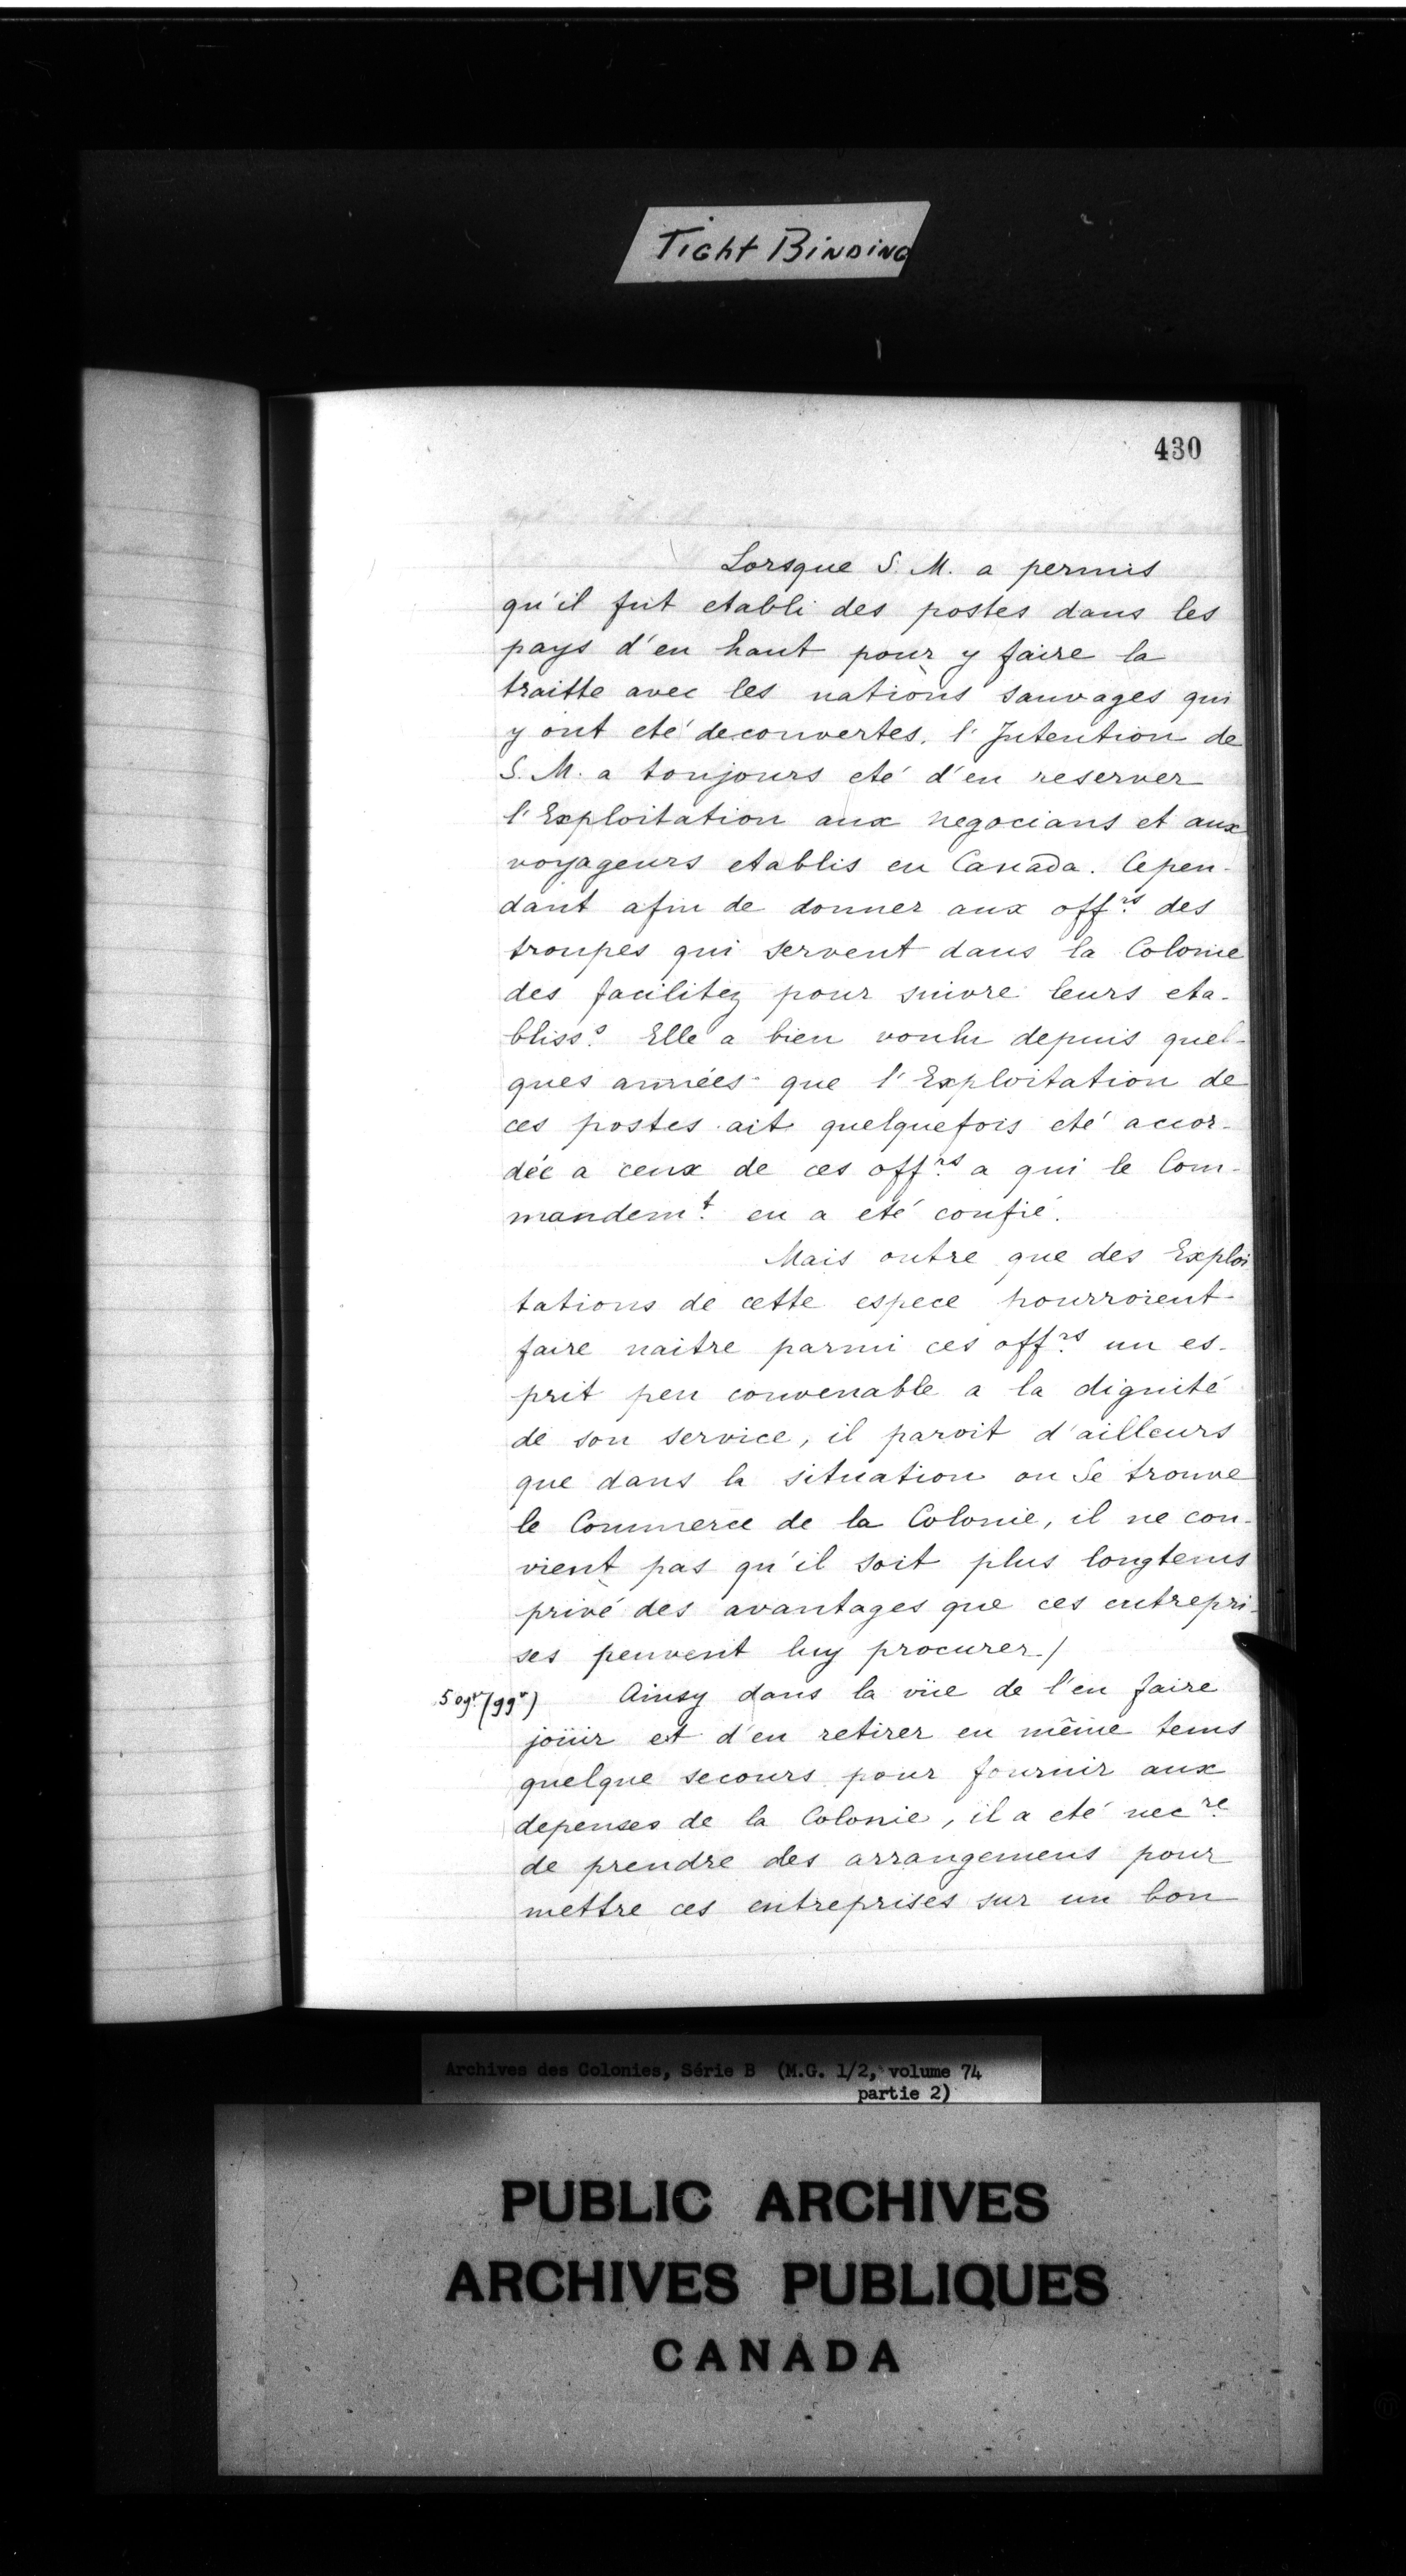 Tight Binding
430
Lorsque S. M. a permis
qu'il fut etabli des postes dans les
pays d'en haut pour y faire la
traitte avec les nations sauvages qui
y ont eté decouvertes, l'Intention de
S. M. a toujours eté d'en reserver
l'Exploitation aux negocians et aux
voyageurs etablis en Canada. Cepen-
dant afin de donner aux offrs. des
troupes qui servent dans la Colonie
des facilitez pour suivre leurs eta-
blisss. Elle a bien voulu depuis quel-
ques années que l'Exploitation de
ces postes ait quelquefois eté accor-
dée a ceux de ces offrs. a qui le Com-
mandemt. en a eté confié.
Mais outre que des Exploi
tations de cette espece pourroient
faire naitre parmi ces offrs. un es-
prit peu convenable a la dignité
de son service, il paroit d'ailleurs
que dans la situation ou Se trouve
le Commerce de la Colonie, il ne con-
vient pas qu'il soit plus longtems
privé des avantages que ces entrepri-
ses peuvent luy procurer/
Ainsy dans la vüe de l'en faire
joüir et d'en retirer en même tems
quelque secours pour fournir aux
depenses de la Colonie, il a eté necre.
de prendre des arrangemens pour
mettre ces entreprises sur un bon
Archives des Colonies, Série B (M.G. 1/2, volume 74
partie 2)
PUBLIC ARCHIVES
ARCHIVES PUBLIQUES
CANADA